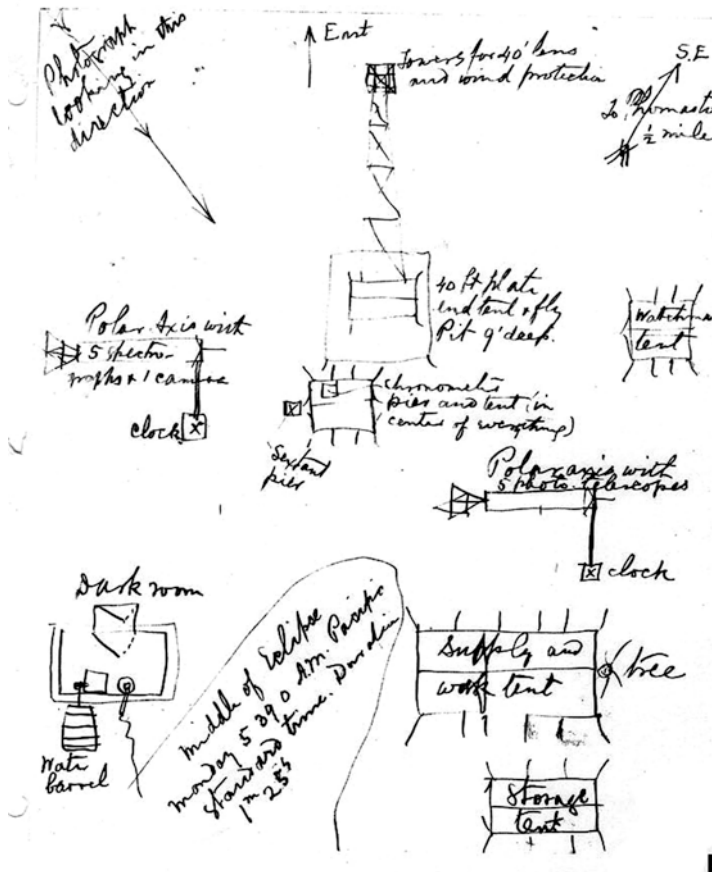 Photograph
looking in this
direction
East
Towers for 40' lens
and wind protection
S.E
To Thomaston
1/2 mile
40 ft plate
end tent & fly
Pit 9' deep.
Watchman
tent
Polar Axis with
5 spectro-
graphs & 1 camera
clock
chronometer
pier and tent (in
center of everything)
Sextant
pier
Polar axis with
5 photo. telescopes
clock
Dark room
Water
barrel
Middle of Eclipse
Monday 5 39 0 A.M. Pacific
Standard time. Duration
1m 25s
Supply and
work tent
tree
Storage
tent